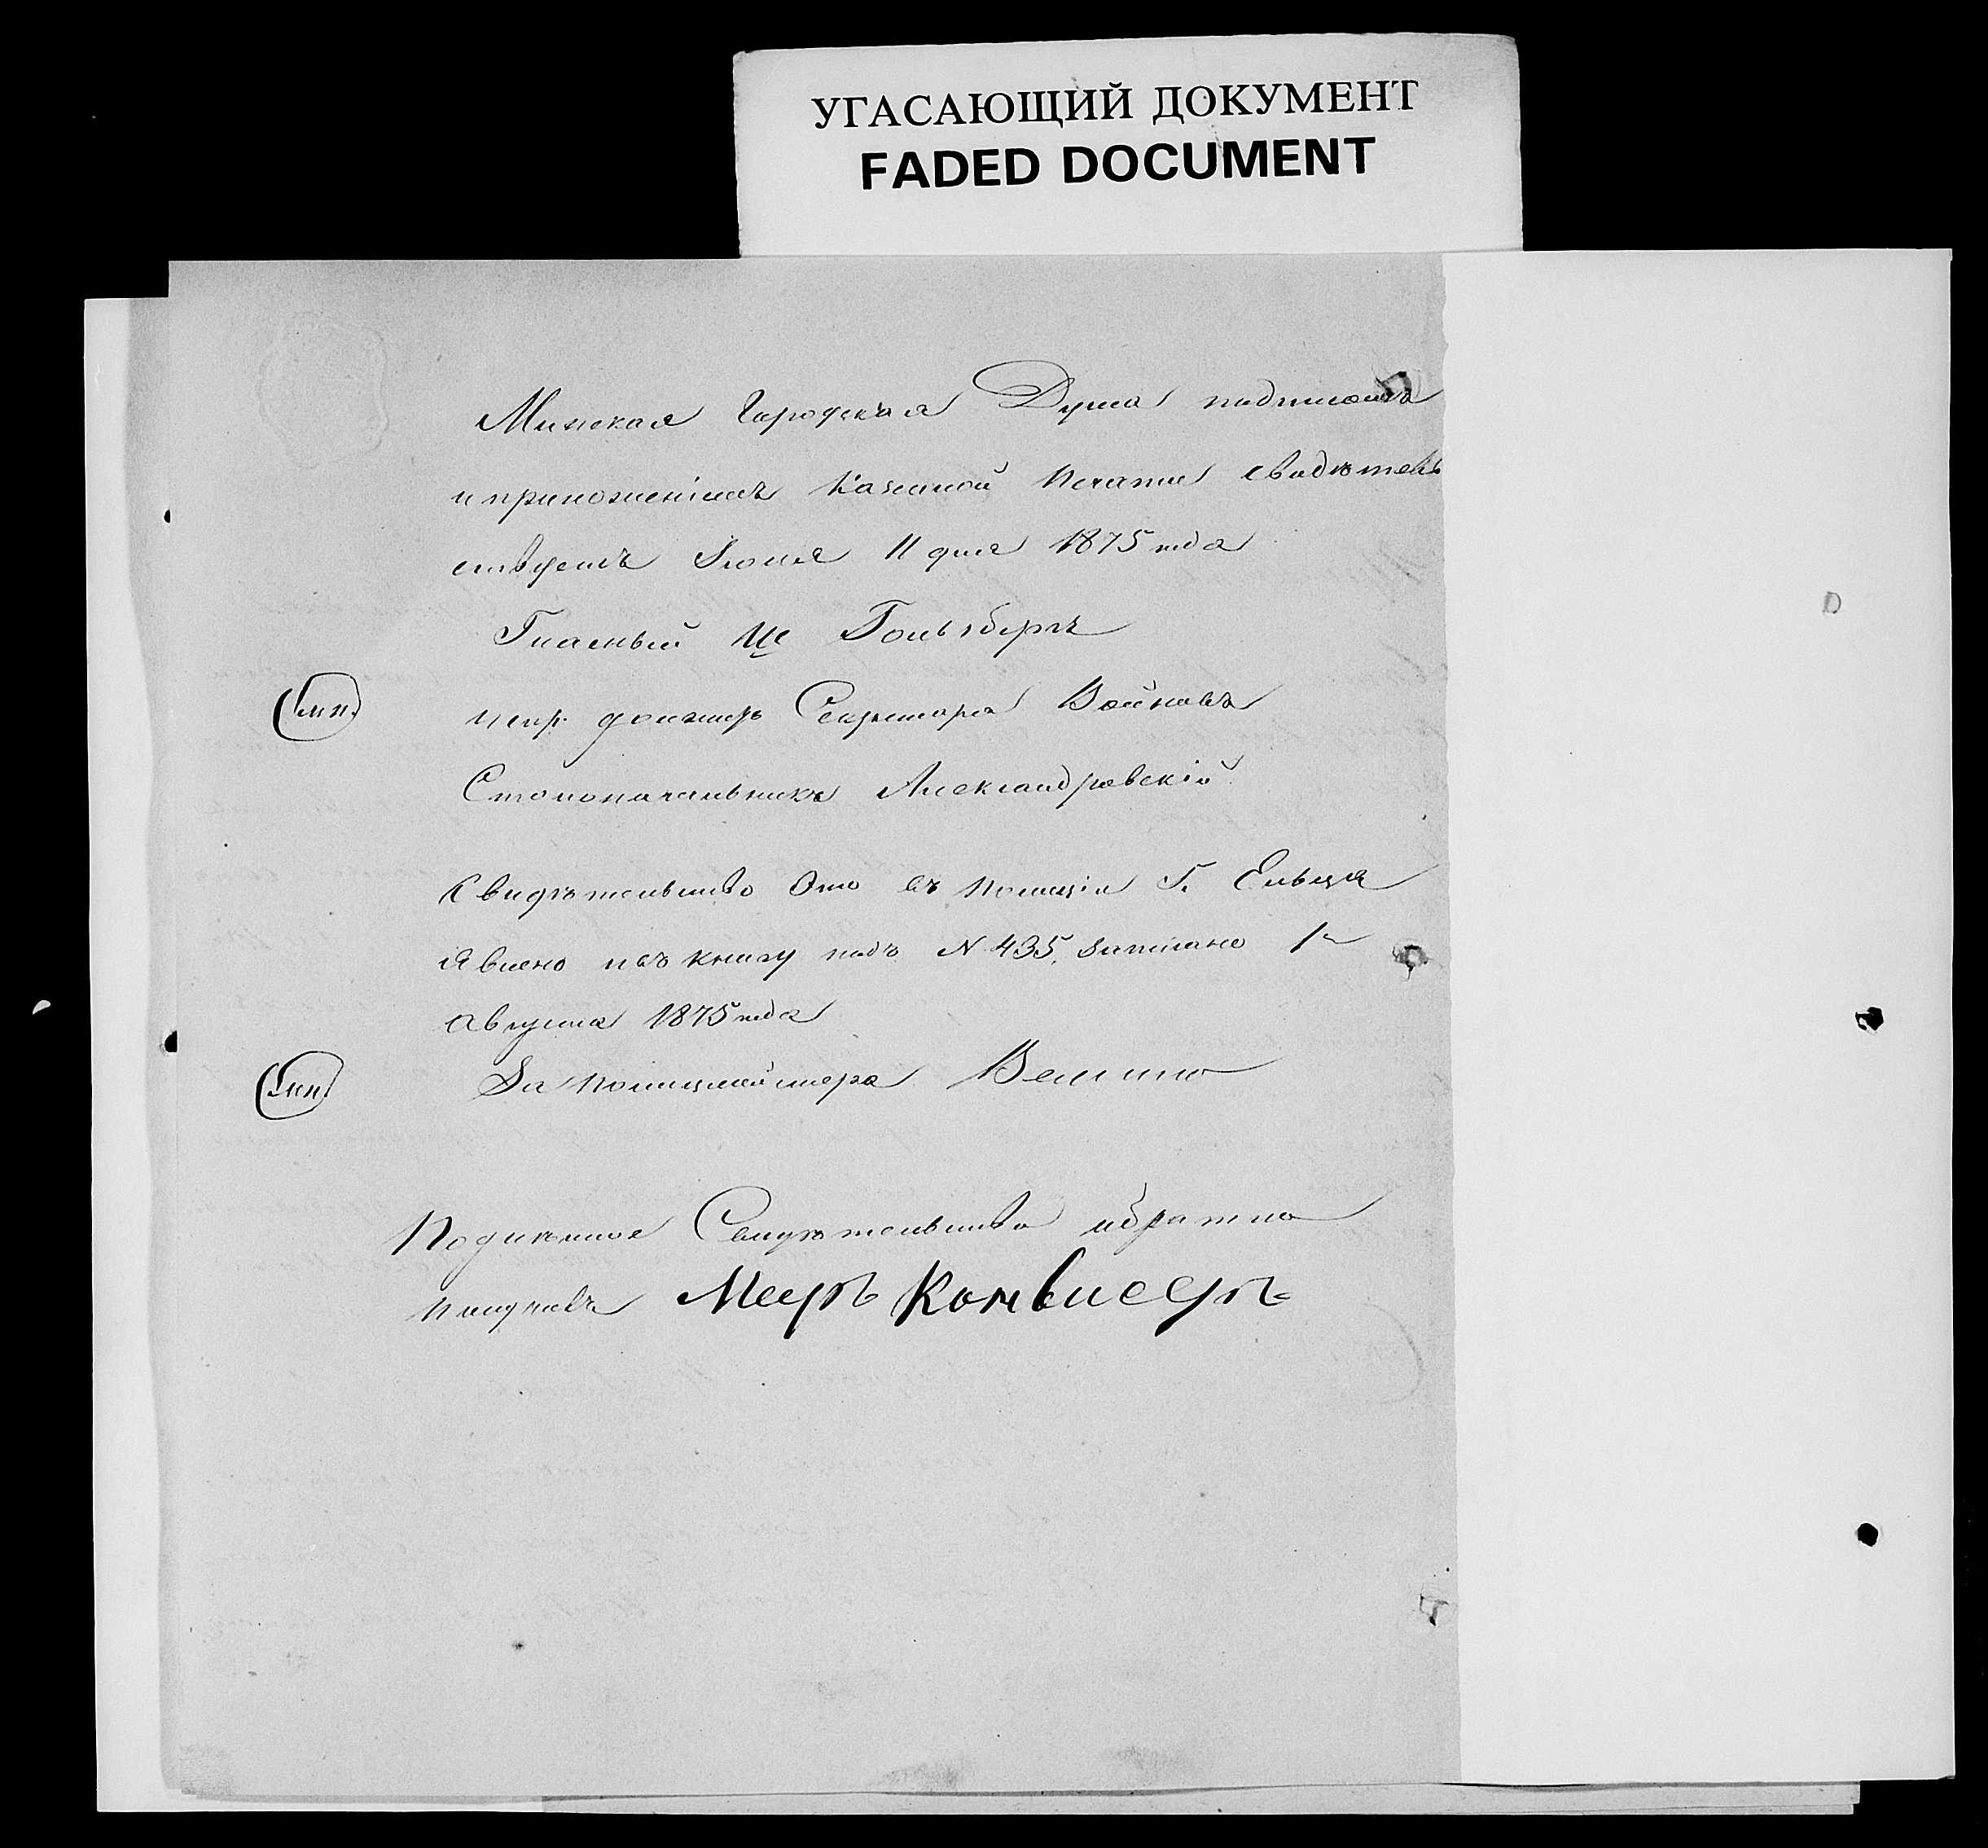 УГАСАЮЩИЙ ДОКУМЕНТ
FADED DOCUMENT
Минская Городская Дума подписомъ
и приложеніемъ Казенной Печати свидѣтель
ствуетъ Іюня 11 дня 1875 года
Гласный Гользбергъ
М.П. Испр. должнтр Секретаря Войновъ
Столоначальникъ Александровскій
Свидѣтельство Это въ Полиціи Г. Ельца
Явлено и въ книгу подъ N 435, Записано 1
Августа 1875 года
М.П. За Полицмейстера
Подлинное Свидѣтельство обратно
получилъ Меръ